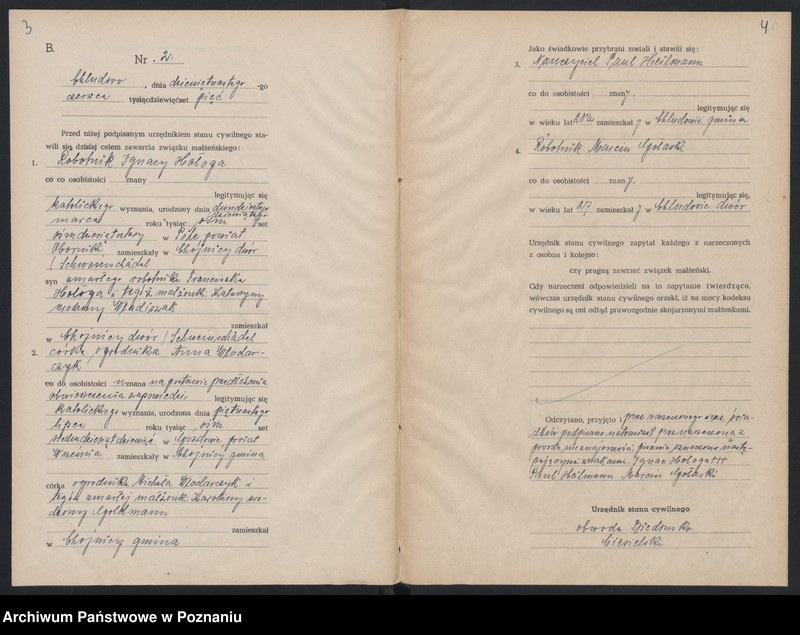 3
B.
Nr. 2.
Chludowo, dnia dziewiętnastego-go
czerwca tysiącdziewięćset pięć
Przed niżej podpisanym urzędnikiem stanu cywilnego sta-
wili się dzisiaj celem zawarcia związku małżeńskiego:
1. Robotnik Ignacy Hołoga
co co osobistości znany
legitymując się
katolickiego wyznania, urodzony dnia dwudziestego
dziewiątego
marca roku tysiąc osim set
ośmdziesiątcztery w powiat
Oborniki, zamieszkały w Chojnicy dwór
/Schwersenschädel
syn zmarłego robotnika Franciszka
Hołoga i tegóż małżonk. Katarzyny
zamieszkał
w Chojnicy dwór /
2. córka ogrodnika Anna Włodar-
czyk
co do osobistości uznana na podstawie przedłożenia
obwieszczenia zapowiedzi legitymując się
katolickiego wyznania, urodzona dnia piętnastego
lipca roku tysiąc ośm set
siedmdziesiątdziewięć w powiat
Września zamieszkały w Chojnicy gmina
córka ogrodnika Michała Włodarczyk i
tegóż zmarłej małżonk. Karoliny uro-
dzonej Goldmann
zamieszkał
w Chojnicy gmina
4
Jako świadkowie przybrani zostali i stawili się:
3. Nauczyciel Paul Heilmann
co do osobistości znany.
legitymując się
w wieku lat zamieszkały w Chludowie gmina
4. Robotnik Marcin Gołaski
co do osobistości znany.
legitymując się,
w wieku lat 27 zamieszkały w Chludowie dwór
Urzędnik stanu cywilnego zapytał każdego z narzeczonych
z osobna i kolejno:
czy pragną zawrzeć związek małżeński.
Gdy narzeczeni odpowiedzieli na to zapytanie twierdząco,
wówczas urzędnik stanu cywilnego orzekł, iż na mocy kodeksu
cywilnego są oni odtąd prawozgodnie skojarzonymi małżonkami.
Odczytano, przyjęto i przez narzeczonego oraz świa-
dków podpisano natomiast przez narzeczoną z
powodu nieznajomości pisania oznaczono nastę-
pującymi znakami. Ignac Hołoga +++
Paul Heilmann Marcin Gołaski
Urzędnik stanu cywilnego
obwodu Biedrusko
Ciesielski
Archiwum Państwowe w Poznaniu